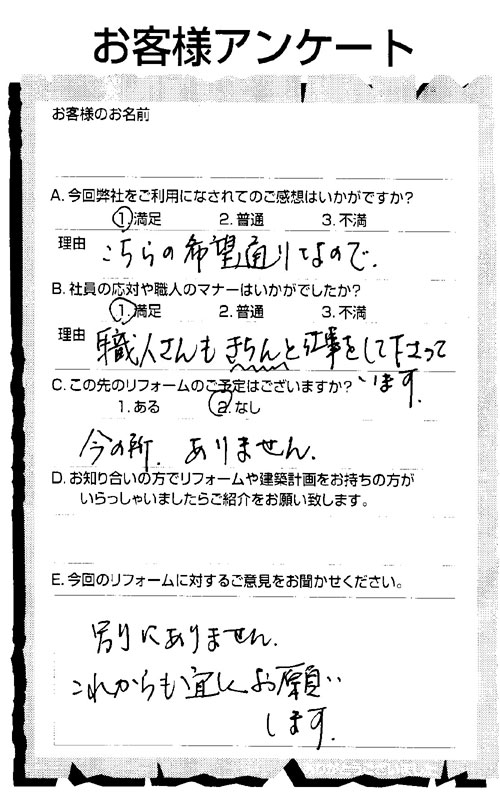 お客様アンケート
お客様のお名前
A. 今回弊社をご利用になされてのご感想はいかがですか?
1. 満足 2. 普通 3. 不満
理由 こちらの希望通りなので.
B. 社員の応対や職人のマナーはいかがでしたか?
1. 満足 2. 普通 3. 不満
理由 職人さんもきちんと仕事をして下さって
います.
C. この先のリフォームのご予定はございますか?
1. ある 2. なし
今の所. ありません.
D. お知り合いの方でリフォームや建築計画をお持ちの方が
いらっしゃいましたらご紹介をお願い致します。
E. 今回のリフォームに対するご意見をお聞かせください。
別にありません.
これからも宜しくお願い
します.